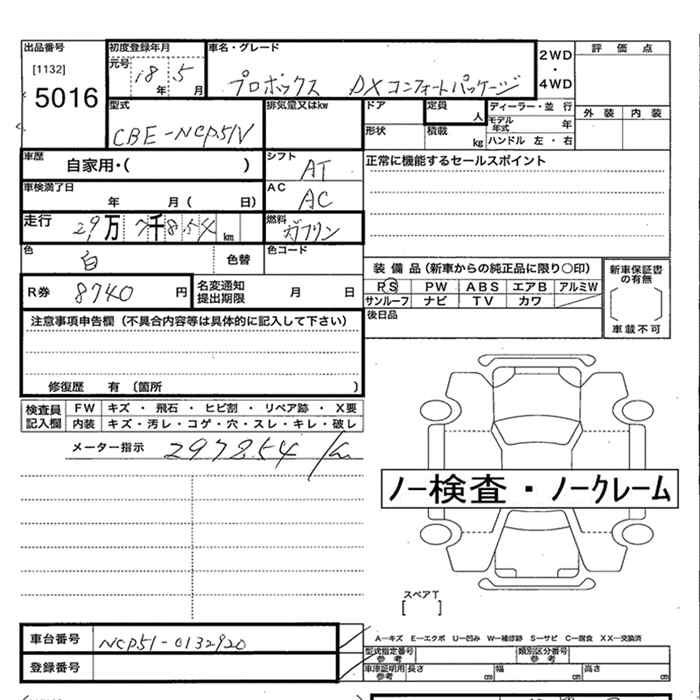 出品番号
[1132]
5016
初度登録年月
元号 18 年 5 月
車名・グレード
プロボックス DXコンフォートパッケージ
2WD
・
4WD
評価点
外装 内装
型式
CBE-NCP51V
排気量又はkw
ドア
形状
定員 人
積載 kg
ディーラー・並行
モデル年式 年
ハンドル 左・右
車歴
自家用・( )
シフト
AT
正常に機能するセールスポイント
車検満了日
年 月( 日)
AC
AC
走行
29万 7千854 km
燃料
ガソリン
色
白
色替
色コード
装備品(新車からの純正品に限り○印)
PS PW ABS エアB アルミW
サンルーフ ナビ TV カワ
新車保証書の有無
車載不可
R券 8740 円
名変通知
提出期限
月 日
後日品
注意事項申告欄(不具合内容等は具体的に記入して下さい)
修復歴 有〔箇所 〕
検査員
記入欄
FW キズ・飛石・ヒビ割・リペア跡・X要
内装 キズ・汚レ・コゲ・穴・スレ・キレ・破レ
メーター指示 297854 km
ノー検査・ノークレーム
スペアT
[ ]
車台番号 NCP51-0132920
登録番号
A―キズ E―エクボ U―凹み W―補修跡 S―サビ C―腐食 XX―交換済
型式指定番号
参考
類別区分番号
参考
車庫証明用
参考
長さ cm
幅 cm
高さ cm